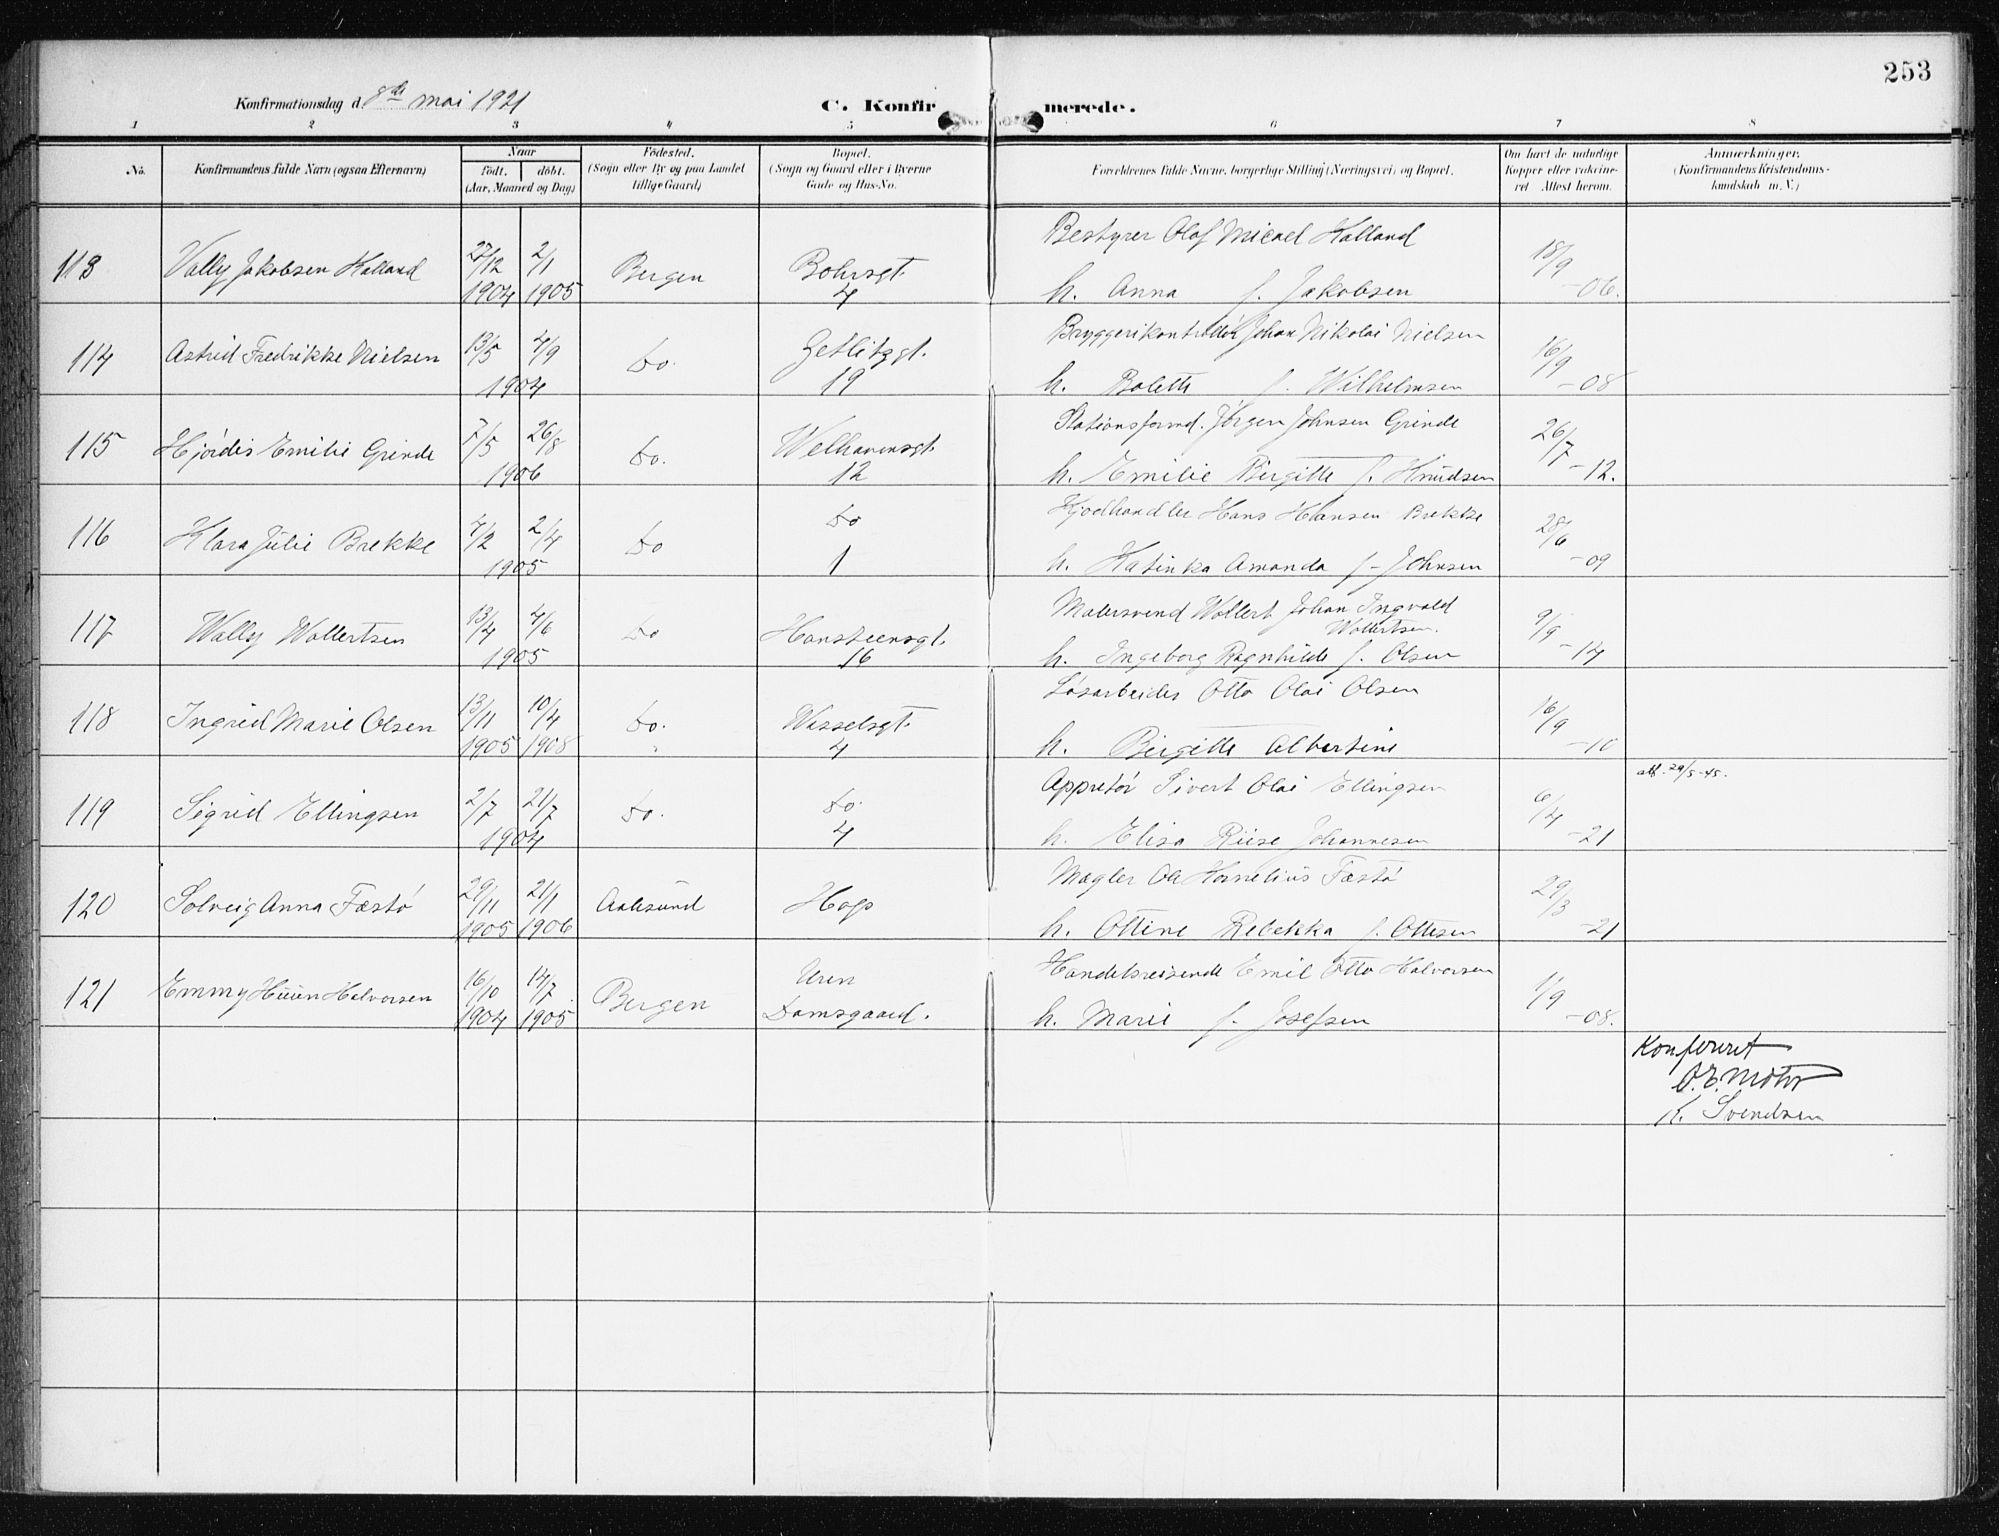 253
Konfirmationsdag d. 8de mai 1921
C. Konfirmerede.
1 2 3 4 5 6 7 8
No.
Konfirmandens fulde Navn (ogsaa Efternavn)
Naar
födt. döbt.
(Aar, Maaned og Dag)
Födested.
(Sogn eller By og paa Landet
tillige Gaard)
Bopæl.
(Sogn og Gaard eller i Byerne
Gade og Hus-No.
Forældrenes fulde Navne, borgerlige Stilling (Næringsvei) og Bopæl.
Om havt de naturlige
Kopper eller vaccine-
ret Attest herom.
Anmærkninger.
(Konfirmandens Kristendoms-
kundskab m. V.)
Bestyrer Olaf Micael Halland
113 Vally Jakobsen Halland 27/12 2/1 Bergen Bohrsgt. 18/9
1904 1905 4 h. Anna f. Jakobsen -06.
Bryggerikontrollør Johan Nikolai Nielsen
114 Astrid Fredrikke Nielsen 13/5 4/9 Do. Getlitzgt. 16/9
1904 19 h. Bolette f. Wilhelmsen -08
Stationsformd. Jörgen Johnsen Grinde
115 Hjördis Emilie Grinde 7/5 26/8 Do. Welhavensgt. 26/7
1906 12 h. Emilie Birgitte f. Knudsen -12.
Kjödhandler Hans Hansen Brekke
116 Klara Julie Brekke 4/2 2/4 Do Do 28/6
1905 1 h. Katinka Amanda f- Johnsen -09
Malersvend Wollert Johan Ingvald
Wollertsen.
117 Wally Wollertsen 13/4 4/6 Do Hansteensgt. 9/9
1905 16 h. Ingeborg Ragnhilde f. Olsen -14
Løsarbeider Otto Olai Olsen
118 Ingrid Marie Olsen 13/11 10/4 Do. Wesselsgt. 16/9
1905 1908 4 h. Birgitte Albertine -10
Appretör Sivert Olai Ellingsen att. 29/5-45.
119 Sigrid Ellingsen 2/7 21/7 Do. Do. 6/4
1904 4 h. Elisa Riise Johannesen -21
Mægler Ole Kornelius Fæstø
120 Solveig Anna Fæstø 29/11 21/1 Aalesund Hop 29/3
1905 1906 h. Ottine Rebekka f. Ottesen -21
Handelsreisende Emil Otto Halvorsen
121 Emmy Halvorsen 16/10 14/7 Bergen Uren 1/9
1904 1905 Damsgaard. h. Marie f. Josefsen -08.
Konfereret
O.E. Mohr
K. Svendsen